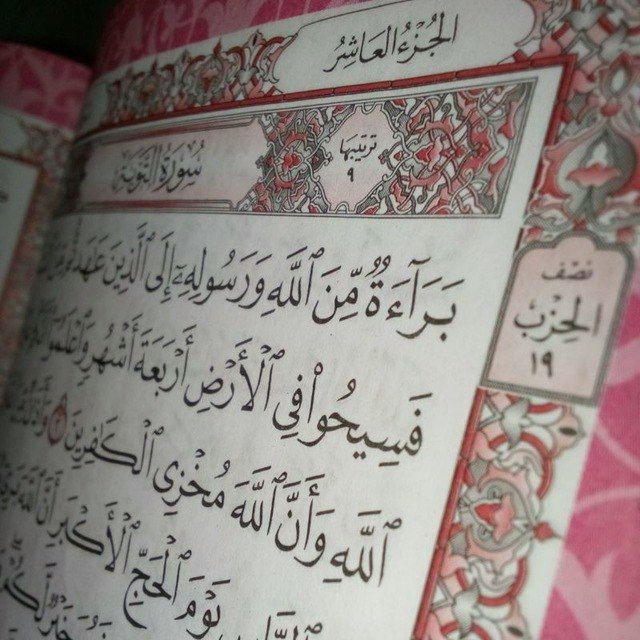 الجُزْءُ العَاشِرُ
سُورَةُ التَّوْبَةِ
تَرْتِيبُهَا
٩
نِصْف
الحِزْبُ
١٩
بَرَآءَةٌ مِّنَ ٱللَّهِ وَرَسُولِهِۦٓ إِلَى ٱلَّذِينَ عَٰهَدتُّم
فَسِيحُوا۟ فِى ٱلْأَرْضِ أَرْبَعَةَ أَشْهُرٍ وَٱعْلَمُوٓا۟
ٱللَّهِ وَأَنَّ ٱللَّهَ مُخْزِى ٱلْكَٰفِرِينَ
يَوْمَ ٱلْحَجِّ ٱلْأَكْبَرِ أَنَّ ٱللَّهَ